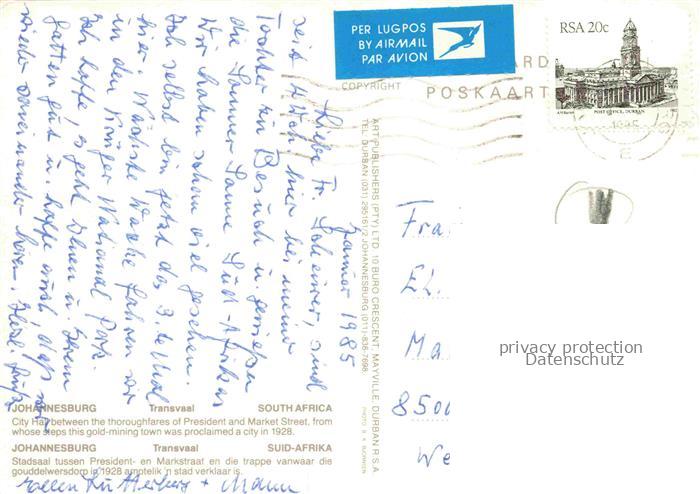 PER LUGPOS
BY AIRMAIL
PAR AVION
RSA 20c
POST OFFICE, DURBAN
COPYRIGHT
POSKAART
Januar 1985
Liebe Fr. Scheurer, sind
seit Mittw. hier bei meiner
Tochter zu Besuch u. genießen
die Sonne Süd-Afrikas
Wir haben schon viel gesehen.
Ich selbst bin jetzt das 3. te Mal
hier. Nächste Woche fahren wir
in den Krüger National Park.
Ich hoffe, es geht Ihnen u. Ihrem
Gatten gut u. hoffe auch, daß wir
wieder voneinander hören. Herzl. Grüße
+ Mann
ART PUBLISHERS (PTY) LTD. 10 BURO CRESCENT, MAYVILLE, DURBAN R.S.A.
TEL. DURBAN (031) JOHANNESBURG (011)-836-7698.
Frau
El.
Ma
8500
We
privacy protection
Datenschutz
JOHANNESBURG Transvaal SOUTH AFRICA
City Hall between the thoroughfares of President and Market Street, from
whose steps this gold-mining town was proclaimed a city in 1928.
JOHANNESBURG Transvaal SUID-AFRIKA
Stadsaal tussen President- en Markstraat en die trappe vanwaar die
gouddelwersdorp in 1928 amptelik 'n stad verklaar is.